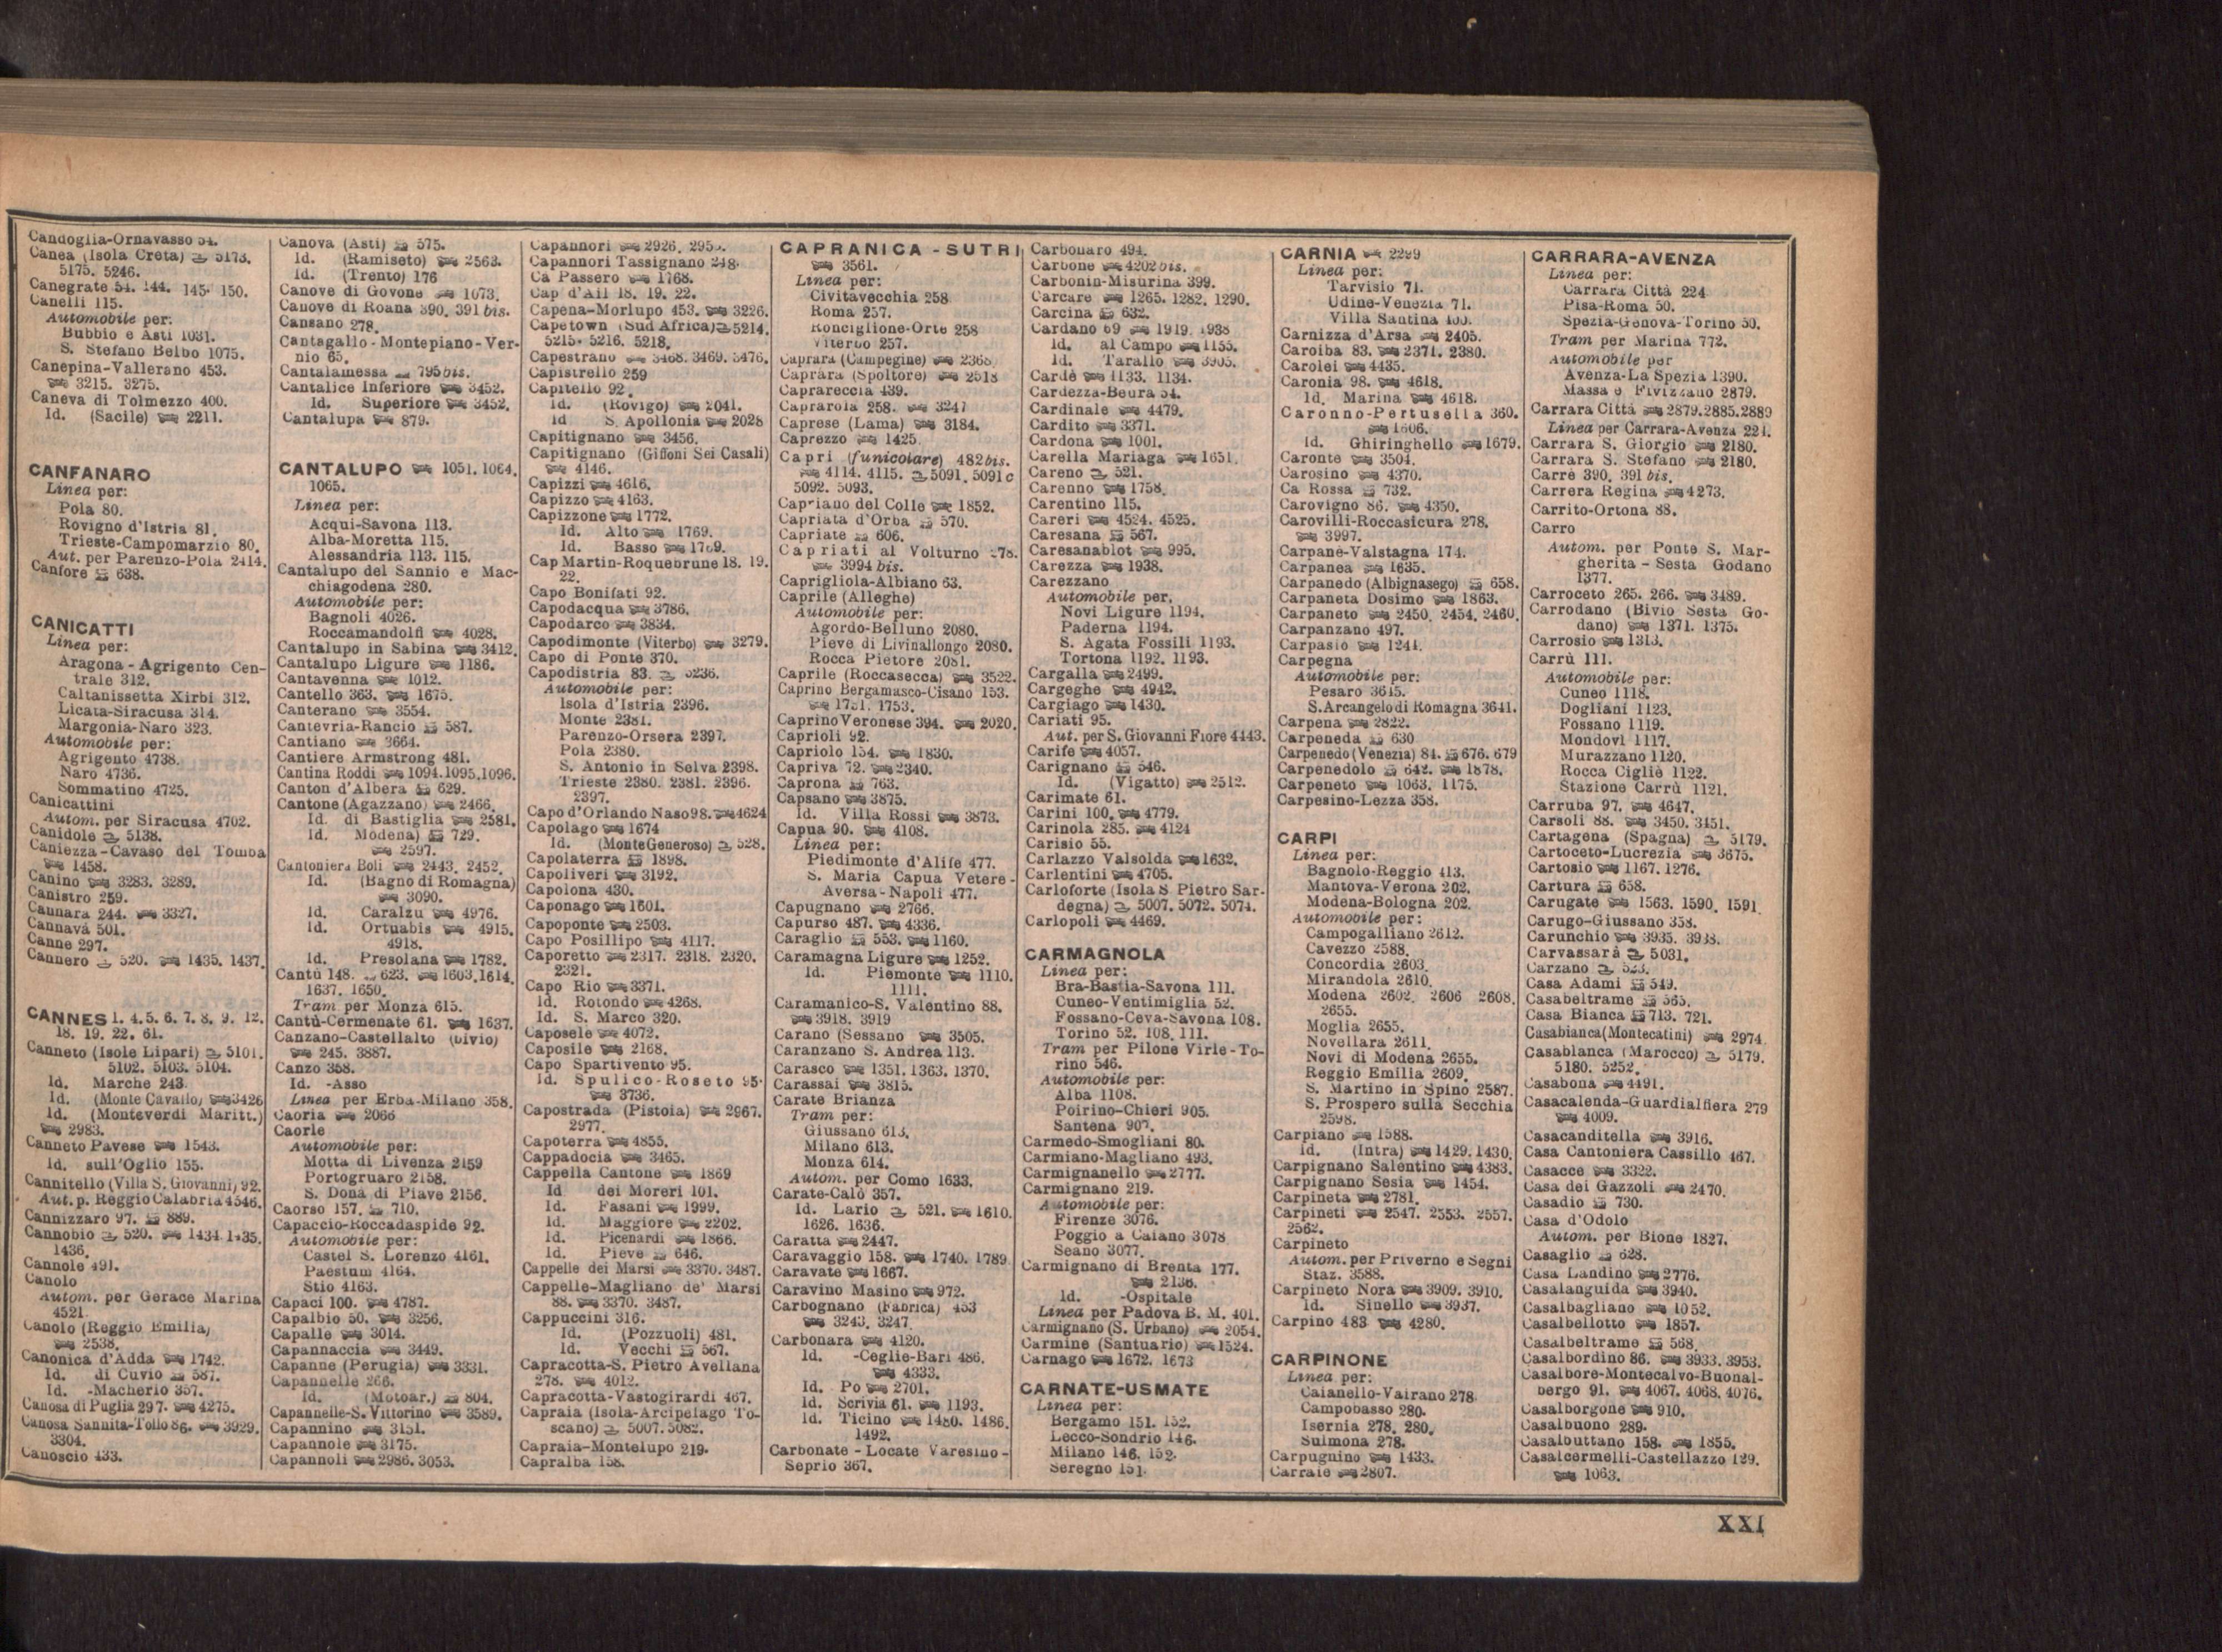 Candoglia-Ornavasso 54.
Canea (Isola Creta) 5173.
5175. 5246.
Canegrate 54. 144. 145. 150.
Canelli 115.
Automobile per:
Bubbio e Asti 1031.
S. Stefano Belbo 1075.
Canepina-Vallerano 453.
3215. 3275.
Caneva di Tolmezzo 400.
Id. (Sacile) 2211.
CANFANARO
Linea per:
Pola 80.
Rovigno d'Istria 81.
Trieste-Campomarzio 80.
Aut. per Parenzo-Pola 2414.
Canfore 638.
CANICATTI
Linea per:
Aragona - Agrigento Cen-
trale 312.
Caltanissetta Xirbi 312.
Licata-Siracusa 314.
Margonia-Naro 323.
Automobile per:
Agrigento 4738.
Naro 4736.
Sommatino 4725.
Canicattini
Autom. per Siracusa 4702.
Canidole 5138.
Caniezza-Cavaso del Tomba
1458.
Canino 3283. 3289.
Canistro 259.
Cannara 244. 3327.
Cannavà 501.
Canne 297.
Cannero 520. 1435. 1437.
CANNES 1. 4. 5. 6. 7. 8. 9. 12.
18. 19. 22. 61.
Canneto (Isole Lipari) 5101.
5102. 5103. 5104.
Id. Marche 243.
Id. (Monte Cavallo) 3426
Id. (Monteverdi Maritt.)
2983.
Canneto Pavese 1543.
Id. sull'Oglio 155.
Cannitello (Villa S. Giovanni) 92.
Aut. p. Reggio Calabria 4546.
Cannizzaro 97. 889.
Cannobio 520. 1434. 1435.
1436.
Cannole 491.
Canolo
Autom. per Gerace Marina
4521.
Canolo (Reggio Emilia)
2538.
Canonica d'Adda 1742.
Id. di Cuvio 587.
Id. -Macherio 357.
Canosa di Puglia 297. 4275.
Canosa Sannita-Tollo 86. 3929.
3304.
Canoscio 433.
Canova (Asti) 575.
Id. (Ramiseto) 2563.
Id. (Trento) 176
Canove di Govone 1073.
Canove di Roana 390. 391 bis.
Cansano 278.
Cantagallo - Montepiano - Ver-
nio 65.
Cantalamessa 795 bis.
Cantalice Inferiore 3452.
Id. Superiore 3452.
Cantalupa 879.
CANTALUPO 1051. 1064.
1065.
Linea per:
Acqui-Savona 113.
Alba-Moretta 115.
Alessandria 113. 115.
Cantalupo del Sannio e Mac-
chiagodena 280.
Automobile per:
Bagnoli 4026.
Roccamandolfi 4028.
Cantalupo in Sabina 3412.
Cantalupo Ligure 1186.
Cantavenna 1012.
Cantello 363. 1675.
Canterano 3554.
Cantevria-Rancio 587.
Cantiano 3664.
Cantiere Armstrong 481.
Cantina Roddi 1094. 1095. 1096.
Canton d'Albera 629.
Cantone (Agazzano) 2466.
Id. di Bastiglia 2581.
Id. Modena) 729.
2597.
Cantoniera Boli 2443. 2452.
Id. (Bagno di Romagna)
3090.
Id. Caralzu 4976.
Id. Ortuabis 4915.
4918.
Id. Presolana 1782.
Cantù 148. 623. 1603. 1614.
1637. 1650.
Tram per Monza 615.
Cantù-Cermenate 61. 1637.
Canzano-Castellalto (bivio)
245. 3887.
Canzo 358.
Id. -Asso
Linea per Erba-Milano 358.
Caoria 2066
Caorle
Automobile per:
Motta di Livenza 2159
Portogruaro 2158.
S. Donà di Piave 2156.
Caorso 157. 710.
Capaccio-Roccadaspide 92.
Automobile per:
Castel S. Lorenzo 4161.
Paestum 4164.
Stio 4163.
Capaci 100. 4787.
Capalbio 50. 3256.
Capalle 3014.
Capannaccia 3449.
Capanne (Perugia) 3331.
Capannelle 266.
Id. (Motoar.) 804.
Capannelle-S. Vittorino 3589.
Capannino 3151.
Capannole 3175.
Capannoli 2986. 3053.
Capannori 2926.
Capannori Tassignano 248.
Ca Passero 1768.
Cap d'Ail 18. 19. 22.
Capena-Morlupo 453. 3226.
Capetown (Sud Africa) 5214.
5215. 5216. 5218.
Capestrano 3468. 3469. 3476.
Capistrello 259
Capitello 92.
Id. (Rovigo) 2041.
Id S. Apollonia 2028
Capitignano 3456.
Capitignano (Giffoni Sei Casali)
4146.
Capizzi 4616.
Capizzo 4163.
Capizzone 1772.
Id. Alto 1769.
Id. Basso 1769.
Cap Martin-Roquebrune 18. 19.
22.
Capo Bonifati 92.
Capodacqua 3786.
Capodarco 3834.
Capodimonte (Viterbo) 3279.
Capo di Ponte 370.
Capodistria 83. 5236.
Automobile per:
Isola d'Istria 2396.
Monte 2381.
Parenzo-Orsera 2397.
Pola 2380.
S. Antonio in Selva 2398.
Trieste 2380. 2381. 2396.
2397.
Capo d'Orlando Naso 98. 4624
Capolago 1674
Id. (Monte Generoso) 528.
Capolaterra 1898.
Capoliveri 3192.
Capolona 430.
Caponago 1601.
Capoponte 2503.
Capo Posillipo 4117.
Caporetto 2317. 2318. 2320.
2321.
Capo Rio 3371.
Id. Rotondo 4268.
Id. S. Marco 320.
Caposele 4072.
Caposile 2168.
Capo Spartivento 95.
Id. Spulico-Roseto 95.
3736.
Capostrada (Pistoia) 2967.
2977.
Capoterra 4855.
Cappadocia 3465.
Cappella Cantone 1869
Id dei Moreri 101.
Id. Fasani 1999.
Id. Maggiore 2202.
Id. Picenardi 1866.
Id. Pieve 646.
Cappelle dei Marsi 3370. 3487.
Cappelle-Magliano de' Marsi
88. 3370. 3487.
Cappuccini 316.
Id. (Pozzuoli) 481.
Id. Vecchi 567.
Capracotta-S. Pietro Avellana
278. 4012.
Capracotta-Vastogirardi 467.
Capraia (Isola-Arcipelago To-
scano) 5007. 5082.
Capraia-Montelupo 219.
Capralba 158.
CAPRANICA - SUTRI
3561.
Linea per:
Civitavecchia 258
Roma 257.
Ronciglione-Orte 258
Viterbo 257.
Caprara (Campegine) 2368
Caprara (Spoltore) 2518
Caprareccia 439.
Caprarola 258. 3247
Caprese (Lama) 3184.
Caprezzo 1425.
Capri (funicolare) 482 bis.
4114. 4115. 5091. 5091 c
5092. 5093.
Capriano del Colle 1852.
Capriata d'Orba 570.
Capriate 606.
Capriati al Volturno 278.
3994 bis.
Caprigliola-Albiano 63.
Caprile (Alleghe)
Automobile per:
Agordo-Belluno 2080.
Pieve di Livinallongo 2080.
Rocca Pietore 2081.
Caprile (Roccasecca) 3522.
Caprino Bergamasco-Cisano 153.
1751. 1753.
Caprino Veronese 394. 2020.
Caprioli 92.
Capriolo 154. 1830.
Capriva 72. 2340.
Caprona 763.
Capsano 3875.
Id. Villa Rossi 3873.
Capua 90. 4108.
Linea per:
Piedimonte d'Alife 477.
S. Maria Capua Vetere -
Aversa - Napoli 477.
Capugnano 2766.
Capurso 487. 4336.
Caraglio 553. 1160.
Caramagna Ligure 1252.
Id. Piemonte 1110.
1111.
Caramanico-S. Valentino 88.
3918. 3919
Carano (Sessano 3505.
Caranzano S. Andrea 113.
Carasco 1351. 1363. 1370.
Carassai 3815.
Carate Brianza
Tram per:
Giussano 613.
Milano 613.
Monza 614.
Autom. per Como 1633.
Carate-Calò 357.
Id. Lario 521. 1610.
1626. 1636.
Caratta 2447.
Caravaggio 158. 1740. 1789
Caravate 1667.
Caravino Masino 972.
Carbognano (Fabrica) 453
3243. 3247.
Carbonara 4120.
Id. -Ceglie-Bari 486.
4333.
Id. Po 2701.
Id. Scrivia 61. 1193.
Id. Ticino 1480. 1486.
1492.
Carbonate - Locate Varesino -
Seprio 367.
Carbonaro 494.
Carbone 4202 bis.
Carbonin-Misurina 399.
Carcare 1265. 1282. 1290.
Carcina 632.
Cardano 69 1919. 1938
Id. al Campo 1155.
Id. Tarallo 3905.
Cardè 1133. 1134.
Cardezza-Beura 54.
Cardinale 4479.
Cardito 3371.
Cardona 1001.
Carella Mariaga 1651.
Careno 521.
Carenno 1758.
Carentino 115.
Careri 4524. 4525.
Caresana 567.
Caresanablot 995.
Carezza 1938.
Carezzano
Automobile per.
Novi Ligure 1194.
Paderna 1194.
S. Agata Fossili 1193.
Tortona 1192. 1193.
Cargalla 2499.
Cargeghe 4942.
Cargiago 1430.
Cariati 95.
Aut. per S. Giovanni Fiore 4443.
Carife 4057.
Carignano 546.
Id. (Vigatto) 2512.
Carimate 61.
Carini 100. 4779.
Carinola 285. 4124
Carisio 55.
Carlazzo Valsolda 1632.
Carlentini 4705.
Carloforte (Isola S. Pietro Sar-
degna) 5007. 5072. 5074.
Carlopoli 4469.
CARMAGNOLA
Linea per:
Bra-Bastia-Savona 111.
Cuneo-Ventimiglia 52.
Fossano-Ceva-Savona 108.
Torino 52. 108. 111.
Tram per Pilone Virle-To-
rino 546.
Automobile per:
Alba 1108.
Poirino-Chieri 905.
Santena 907.
Carmedo-Smogliani 80.
Carmiano-Magliano 493.
Carmignanello 2777.
Carmignano 219.
Automobile per:
Firenze 3076.
Poggio a Caiano 3078
Seano 3077.
Carmignano di Brenta 177.
2136.
Id. -Ospitale
Linea per Padova B. M. 401.
Carmignano (S. Urbano) 2054.
Carmine (Santuario) 1524.
Carnago 1672. 1673
CARNATE-USMATE
Linea per:
Bergamo 151. 152.
Lecco-Sondrio 146.
Milano 146. 152.
Seregno 151.
CARNIA 2299
Linea per:
Tarvisio 71.
Udine-Venezia 71.
Villa Santina 400.
Carnizza d'Arsa 2405.
Caroiba 83. 2371. 2380.
Carolei 4435.
Caronia 98. 4618.
Id. Marina 4618.
Caronno-Pertusella 360.
1606.
Id. Ghiringhello 1679.
Caronte 3504.
Carosino 4370.
Ca Rossa 732.
Carovigno 86. 4350.
Carovilli-Roccasicura 278.
3997.
Carpanè-Valstagna 174.
Carpanea 1635.
Carpanedo (Albignasego) 658.
Carpaneta Dosimo 1863.
Carpaneto 2450. 2454. 2460.
Carpanzano 497.
Carpasio 1241.
Carpegna
Automobile per:
Pesaro 3615.
S. Arcangelo di Romagna 3641.
Carpena 2822.
Carpeneda 630
Carpenedo (Venezia) 84. 676. 679
Carpenedolo 642. 1878.
Carpeneto 1063. 1175.
Carpesino-Lezza 358.
CARPI
Linea per:
Bagnolo-Reggio 413.
Mantova-Verona 202.
Modena-Bologna 202.
Automobile per:
Campogalliano 2612.
Cavezzo 2588.
Concordia 2603.
Mirandola 2610.
Modena 2602. 2606 2608.
2655.
Moglia 2655.
Novellara 2611.
Novi di Modena 2655.
Reggio Emilia 2609.
S. Martino in Spino 2587.
S. Prospero sulla Secchia
2598.
Carpiano 1588.
Id. (Intra) 1429. 1430.
Carpignano Salentino 4383.
Carpignano Sesia 1454.
Carpineta 2781.
Carpineti 2547. 2553. 2557.
2562.
Carpineto
Autom. per Priverno e Segni
Staz. 3588.
Carpineto Nora 3909. 3910.
Id. Sinello 3937.
Carpino 483 4280.
CARPINONE
Linea per:
Caianello-Vairano 278
Campobasso 280.
Isernia 278. 280.
Sulmona 278.
Carpugnino 1433.
Carraie 2807.
CARRARA-AVENZA
Linea per:
Carrara Città 224
Pisa-Roma 50.
Spezia-Genova-Torino 50.
Tram per Marina 772.
Automobile per
Avenza-La Spezia 1390.
Massa e Fivizzano 2879.
Carrara Città 2879. 2885. 2889
Linea per Carrara-Avenza 224.
Carrara S. Giorgio 2180.
Carrara S. Stefano 2180.
Carrè 390. 391 bis.
Carrera Regina 4273.
Carrito-Ortona 88.
Carro
Autom. per Ponte S. Mar-
gherita - Sesta Godano
1377.
Carroceto 265. 266. 3489.
Carrodano (Bivio Sesta Go-
dano) 1371. 1375.
Carrosio 1313.
Carrù 111.
Automobile per:
Cuneo 1118.
Dogliani 1123.
Fossano 1119.
Mondovì 1117.
Murazzano 1120.
Rocca Cigliè 1122.
Stazione Carrù 1121.
Carruba 97. 4647.
Carsoli 88. 3450. 3451.
Cartagena (Spagna) 5179.
Cartoceto-Lucrezia 3675.
Cartosio 1167. 1276.
Cartura 658.
Carugate 1563. 1590. 1591
Carugo-Giussano 358.
Carunchio 3935. 3938.
Carvassarà 5031.
Carzano 523.
Casa Adami 549.
Casabeltrame 565.
Casa Bianca 713. 721.
Casabianca (Montecatini) 2974.
Casablanca (Marocco) 5179.
5180. 5252.
Casabona 4491.
Casacalenda-Guardialfiera 279
4009.
Casacanditella 3916.
Casa Cantoniera Cassillo 467.
Casacce 3322.
Casa dei Gazzoli 2470.
Casadio 730.
Casa d'Odolo
Autom. per Bione 1827.
Casaglio 628.
Casa Landino 2776.
Casalanguida 3940.
Casalbagliano 1052.
Casalbellotto 1857.
Casalbeltrame 568
Casalbordino 86. 3933. 3953.
Casalbore-Montecalvo-Buonal-
bergo 91. 4067. 4068. 4076.
Casalborgone 910.
Casalbuono 289.
Casalbuttano 158. 1855.
Casalcermelli-Castellazzo 129.
1063.
XXI